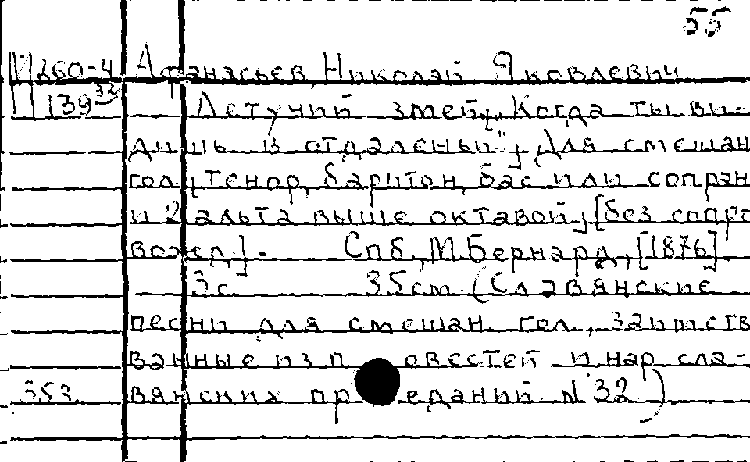 55
М 260-4 Афанасьев, Николай Яковлевич
П 139 32 Летучий змей „Когда ты ви-
дишь в отдаленьи“, Для смешан
гол. [тенор, баритон, бас или сопран
и 2 альта выше октавой, [без сопро
вожд]. Спб, М. Бернард, [1876]
3 с. 35 см (Славянские
песни для смешан. гол., заимств
ванные из п овестей и нар сла-
353 вянских пр еданий № 32)